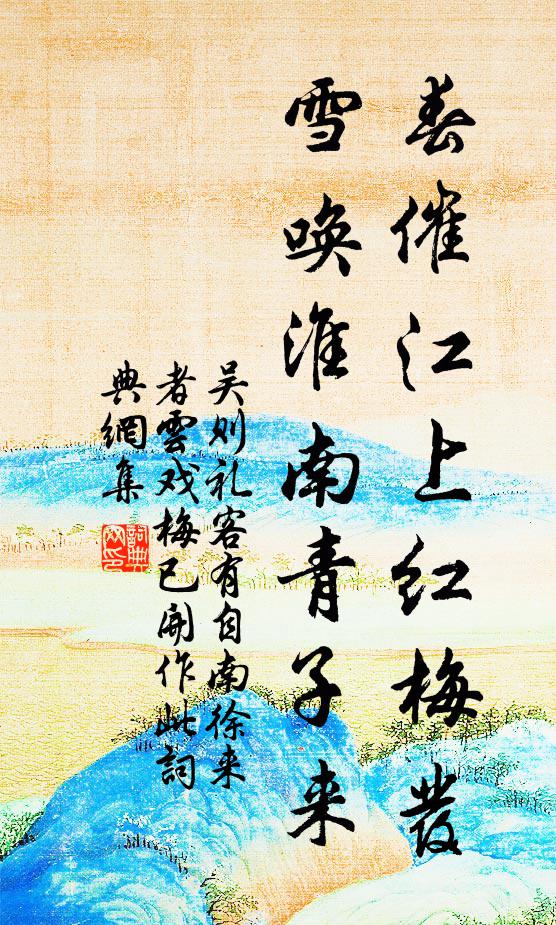 春催江上红梅發
雪唤淮南青子来
吴则礼客有自南徐来
者雲戏梅已開作此詞
典網集